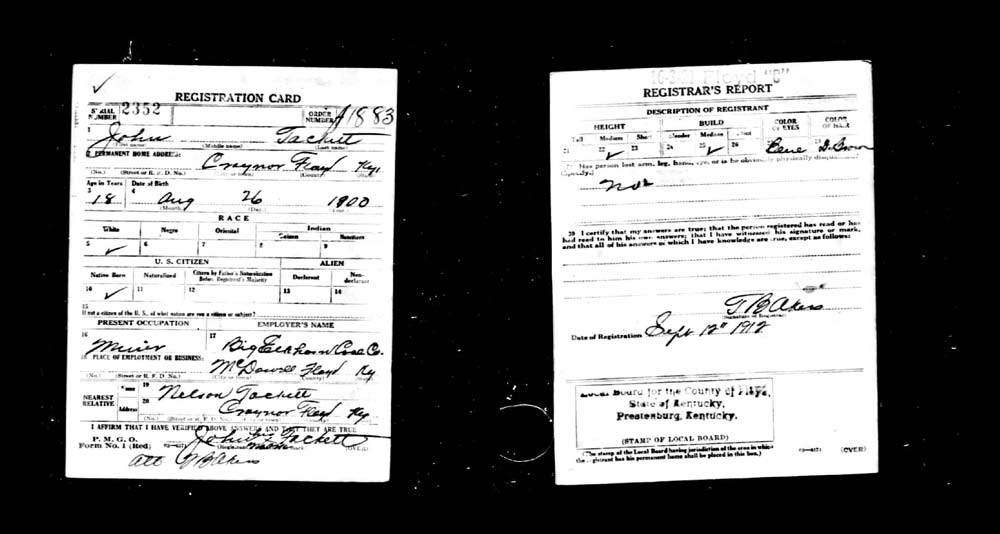 REGISTRATION CARD
SERIAL NUMBER 2352 ORDER NUMBER A1883
1 John Tackett
(First name) (Middle name) (Last name)
2 PERMANENT HOME ADDRESS:
Craynor Floyd Ky.
(No.) (Street or R. F. D. No.) (City or town) (County) (State)
Age in Years Date of Birth
3 4
18 Aug 26 1900
(Month.) (Day.) (Year.)
RACE
White Negro Oriental Indian
Citizen Noncitizen
5 ✓ 6 7 8 9
U. S. CITIZEN ALIEN
Native Born Naturalized Citizen by Father's Naturalization Before Registrant's Majority Declarant Non-declarant
10 ✓ 11 12 13 14
15
If not a citizen of the U. S., of what nation are you a citizen or subject?
PRESENT OCCUPATION EMPLOYER'S NAME
16 Miner 17 Big Elkhorn Coal Co.
18 PLACE OF EMPLOYMENT OR BUSINESS:
McDowell Floyd Ky
(No.) (Street or R. F. D. No.) (City or town) (County) (State)
NEAREST RELATIVE
Name 19 Nelson Tackett
Address 20 Craynor Floyd Ky
(No.) (Street or R. F. D. No.)
I AFFIRM THAT I HAVE VERIFIED ABOVE ANSWERS AND THAT THEY ARE TRUE
P. M. G. O.
Form No. 1 (Red) John his mark Tackett (OVER)
att T B Akers
Floyd "C"
REGISTRAR'S REPORT
DESCRIPTION OF REGISTRANT
HEIGHT BUILD COLOR OF EYES COLOR OF HAIR
Tall Medium Short Slender Medium Stout
21 22 ✓ 23 24 25 ✓ 26
29 Has person lost arm, leg, hand, eye, or is he obviously physically disqualified?
(Specify.)
30 I certify that my answers are true; that the person registered has read or has
had read to him his own answers; that I have witnessed his signature or mark,
and that all of his answers of which I have knowledge are true, except as follows:
T B Akers
(Signature of Registrar)
Date of Registration Sept 12" 1918
Local Board for the County of Floyd,
State of Kentucky,
Prestonburg, Kentucky.
(STAMP OF LOCAL BOARD)
(The stamp of the Local Board having jurisdiction of the area in which
the registrant has his permanent home shall be placed in this box.)
(OVER)